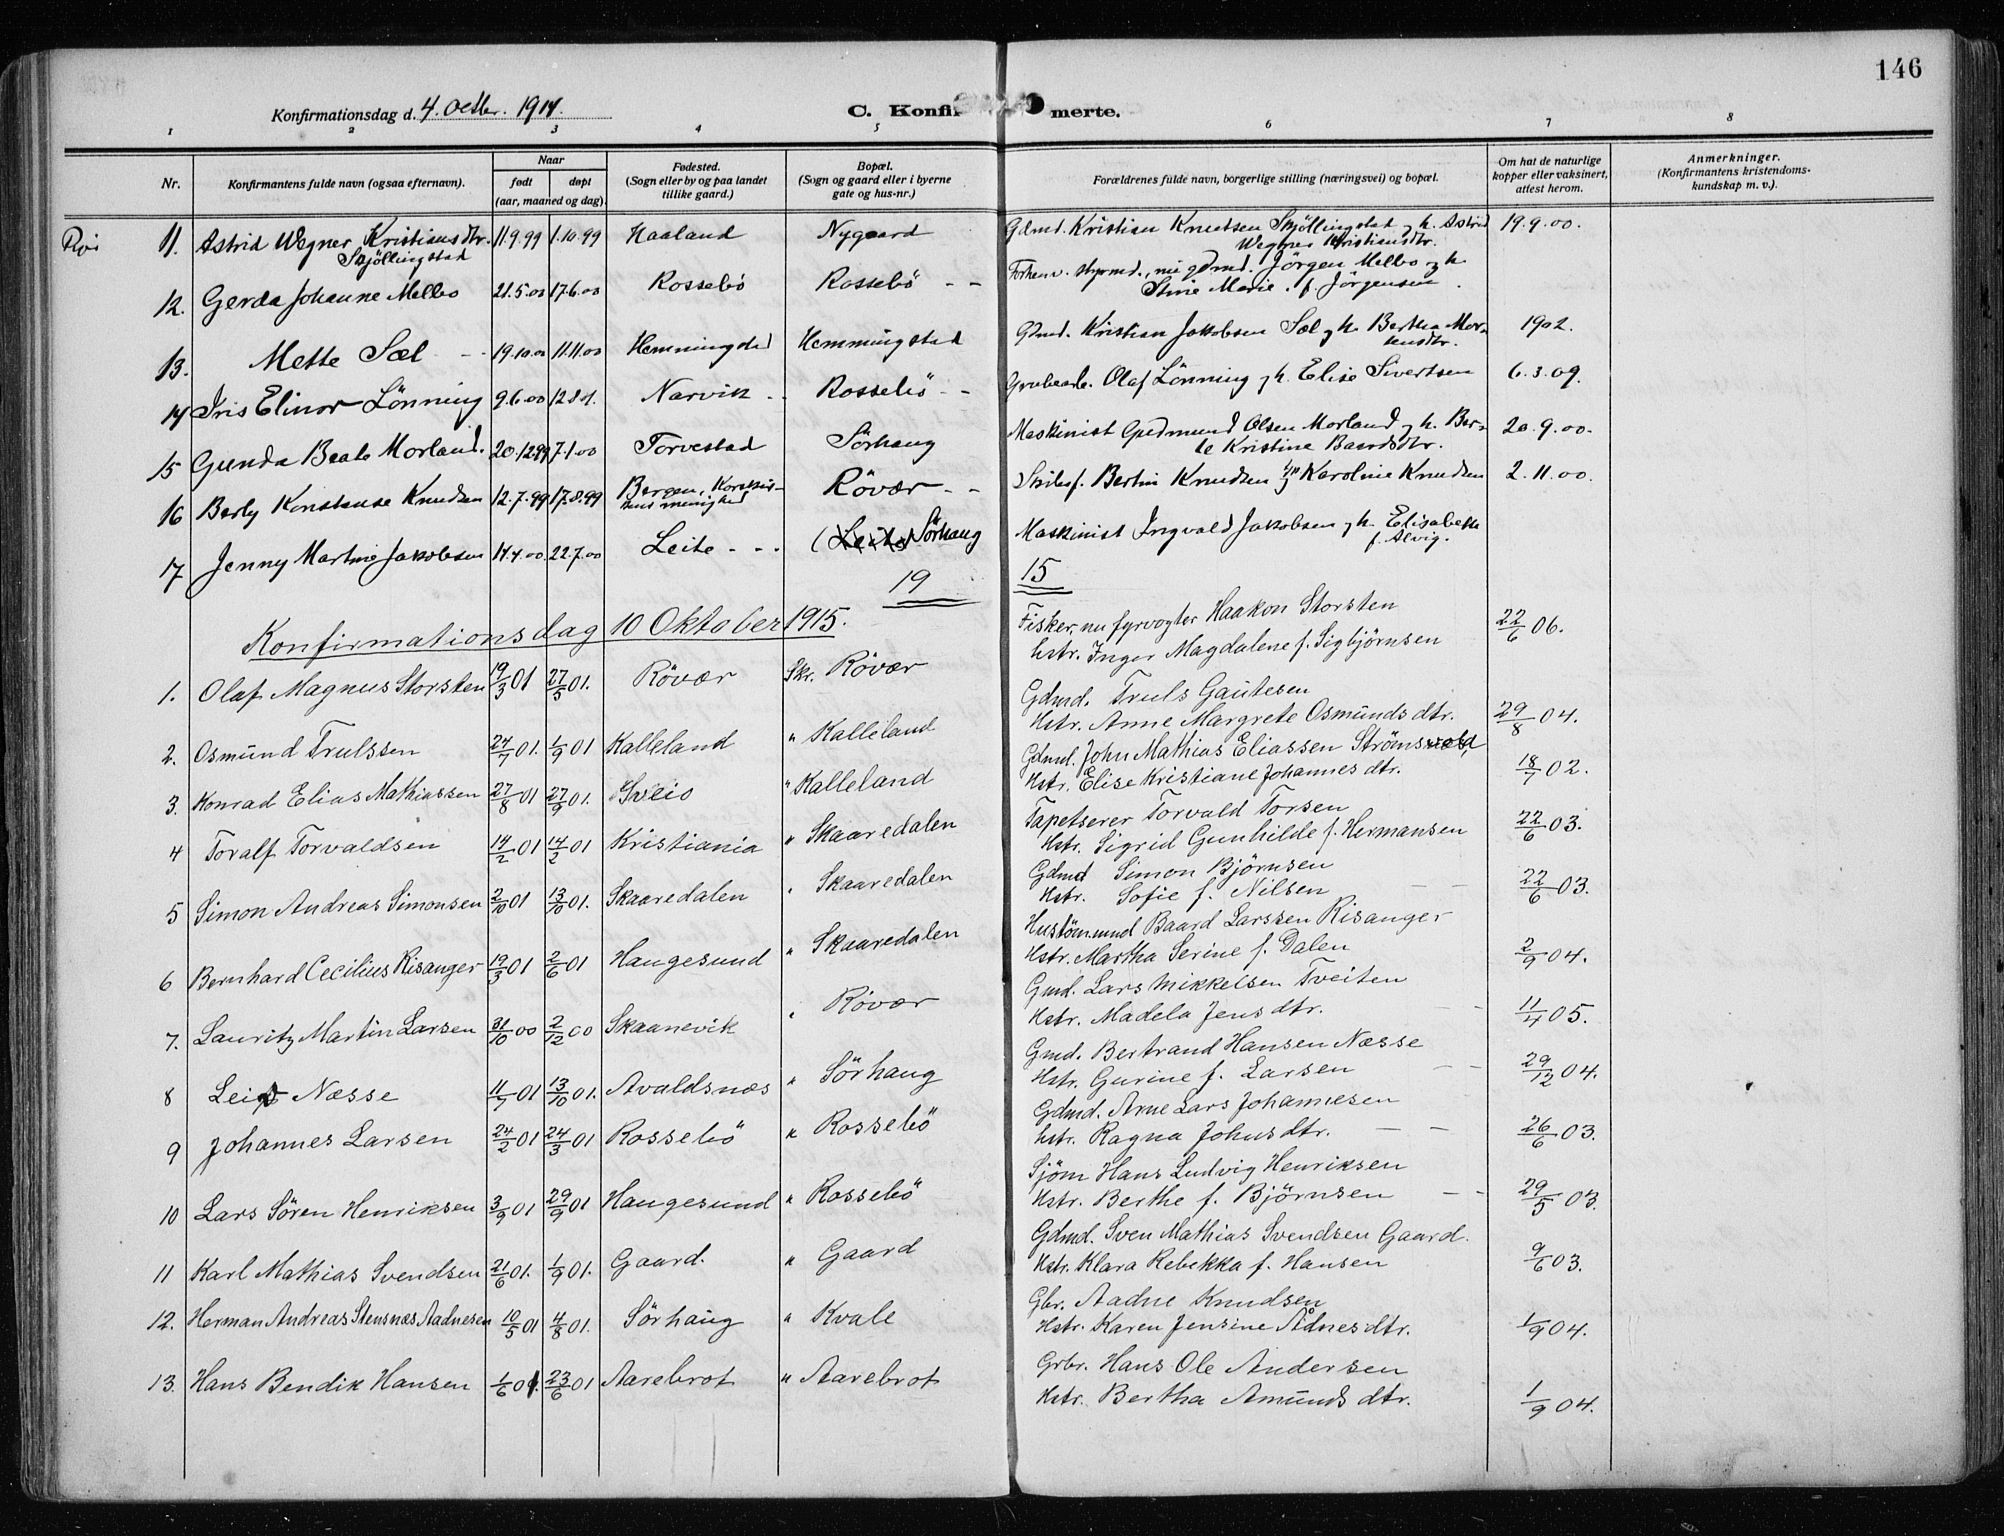 146
Konfirmationsdag d. 4. Octbr. 1914.
C. Konfirmerte.
1 2 3 4 5 6 7 8
Nr. Konfirmantens fulde navn (ogsaa efternavn). Naar født døpt (aar, maaned og dag). Fødested. (Sogn eller by og paa landet tillike gaard.) Bopæl. (Sogn og gaard eller i byerne gate og hus-nr.) Forældrenes fulde navn, borgerlige stilling (næringsvei) og bopæl. Om hat de naturlige kopper eller vaksinert, attest herom. Anmerkninger. (Konfirmantens kristendoms-kundskap m. v.).
11. Astrid Wegner Kristiansdtr. 11.9.99 1.10.99 Haaland Nygaard Gdmd. Kristian Knutsen Skjöllingstad og h. Astrid 19.9.00.
Skjöllingstad Wegner Kristiansdtr.
12. Gerda Johanne Melbo 21.5.00 17.6.00 Rossebö Rossebö - - Forhenv. styrmd., nu gdmd. Jörgen Melbo og h.
Stine Marie. f. Jörgensen.
13. Mette Sæl - - 19.10.00 11.11.00 Hemmingstad Hemmingstad Gdmd. Kristian Jakobsen Sæl og h. Bertha Mor- 1902.
tensdtr.
14 Iris Elinor Lönning 9.6.00 12.8.01. Narvik - Rossebö - - Grubearb. Olaf Lönning og h. Elise Sivertsen 6.3.09.
15 Gunda Beate Morland. 20.12.99 7.1.00 Torvestad Sörhaug Maskinist Gudmund Olsen Morland og h. Ber- 20.9.00.
te Kristine Baardsdtr.
16 Berly Konstanse Knudsen 12.7.99 17.8.99 Bergen, Korskir- Röv̈ær - - Skibsf. Bertin Knudsen og Karoline Knudsen 2.11.00.
kens menighed
17 Jenny Martine Jakobsen 14.4.00 22.7.00 Leite - - - (Leite) Sörhaug Maskinist Ingvald Jakobsen og h. Elisabeth
f. Alvig.
19 15
Konfirmationsdag 10 Oktober 1915.
1. Olaf Magnus Storsten 19/3 01 27/5 01. Rövær Skr. Rövær Fisker, nu fyrvogter Haakon Storsten 22/6 06.
hstr. Inger Magdalene f. Sigbjörnsen
2. Osmund Trulssen 24/7 01. 1/9 01 Kalleland " Kalleland Gdmd. Truls Gautesen
Hstr. Anne Margrete Osmunds dtr. 29/8 04.
3. Konrad Elias Mathiassen 27/8 01 27/9 01. Sveio " Kalleland Gdmd. John Mathias Eliassen Strömsvold
Hstr. Elise Kristiane Johannes dtr. 18/7 02.
4 Toralf Torvaldsen 14/2 01 14/2 01 Kristiania " Skaaredalen Tapetserer Torvald Torsen
Hstr. Sigrid Gunhilde f. Hermansen 22/6 03.
5 Simon Andreas Simonsen 2/10 01 13/10 01. Skaaredalen " Skaaredalen Gdmd Simon Björnsen
Hstr. Sofie f. Nilsen - - 22/6 03.
6 Bernhard Cecilius Risanger 19/3 01 2/6 01 Haugesund " Skaaredalen Hustömmund Baard Larssen Risanger
Hstr. Martha Serine f. Dalen 2/9 04.
7. Lauritz Martin Larsen 31/10 00 2/12 00 Skaanevik " Rövær Gmd. Lars Mikkelsen Tveiten
Hstr. Madela Jens dtr. - - 11/4 05.
8 Leif Næsse 11/7 01 13/10 01. Avaldsnæs " Sörhaug Gmd. Bertrand Hansen Næsse
Hstr. Gurine f. Larsen - - 29/12 04.
9 Johannes Larsen 24/2 01 24/3 01 Rossebö " Rossebö Gdmd. Arne Lars Johannesen
hstr. Ragna Johns dtr. - - 26/6 03.
10 Lars Sören Henriksen 3/9 01 29/9 01 Haugesund " Rossebö Sjöm Hans Ludvig Henriksen
Hstr. Berthe f. Björnsen - - 29/5 03.
11 Karl Mathias Svendsen 21/6 01. 1/9 01. Gaard. " Gaard Gdmd. Sven Mathias Svendsen Gaard.
Hstr. Klara Rebekka f. Hansen 9/6 03.
12. Herman Andreas Stensnæs Aadnesen 10/5 01 4/8 01. Sörhaug " Kvale Gbr. Aadne Knudsen
Hstr. Karen Jensine Ådnes dtr. 1/9 04.
13. Hans Bendik Hansen 1/6 01. 23/6 01 Aarebrot " Aarebrot Grbr. Hans Ole Andersen
Hstr. Bertha Amunds dtr. 1/9 04.